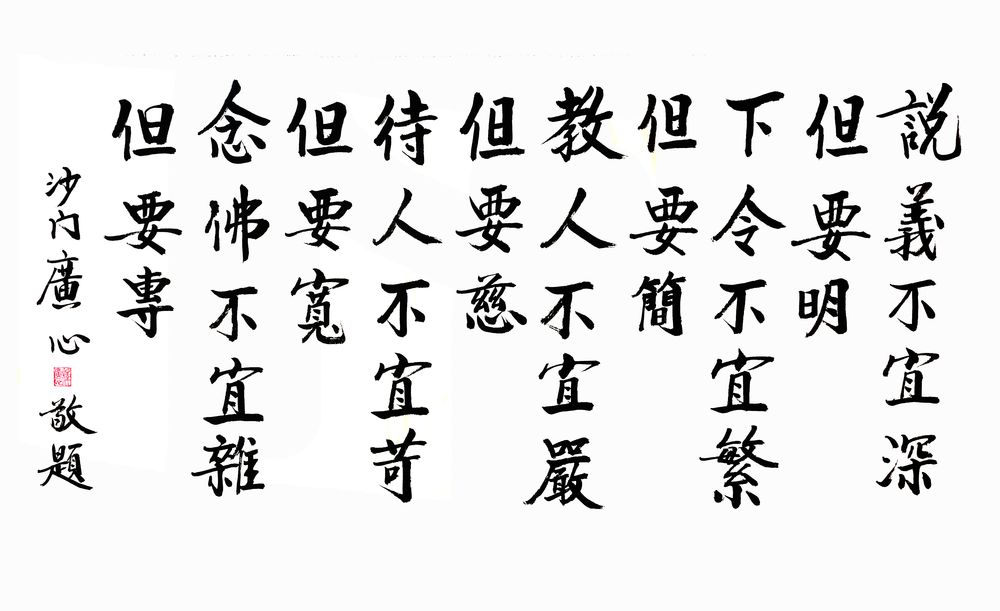 説義不宜深
但要明
下令不宜繁
但要簡
教人不宜嚴
但要慈
待人不宜苛
但要寬
念佛不宜雜
但要專
沙门廣心敬題